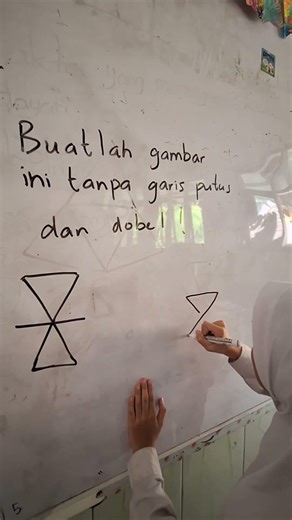 Buatlah gambar
ini tanpa garis putus
dan dobel!
5